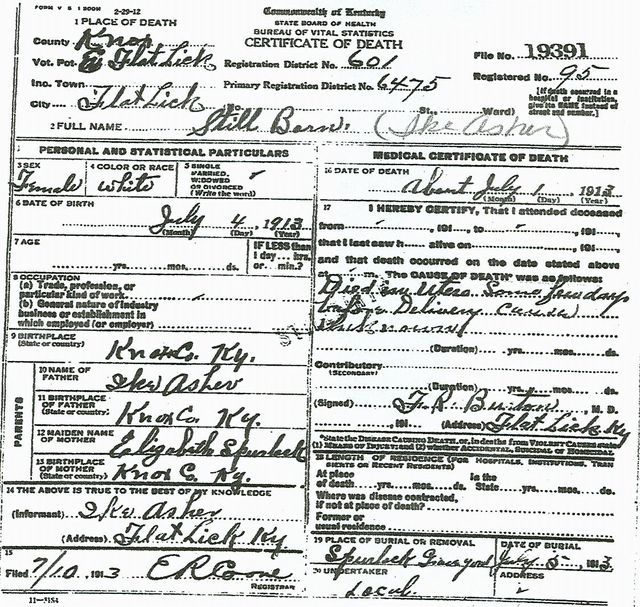 FORM V S 1 500M
2-29-12
Commonwealth of Kentucky
STATE BOARD OF HEALTH
BUREAU OF VITAL STATISTICS
CERTIFICATE OF DEATH
1 PLACE OF DEATH
County Knox
Vot. Pct. E Flat Lick Registration District No. 601
File No. 19391
Inc. Town Primary Registration District No. 6475
Registered No. 95
City Flat Lick St. Ward)
[If death occurred in a hospital or institution, give its NAME instead of street and number.]
2 FULL NAME Still Born. (Ike Asher)
PERSONAL AND STATISTICAL PARTICULARS
3 SEX Female
4 COLOR OR RACE white
5 SINGLE MARRIED, WIDOWED OR DIVORCED (Write the word)
6 DATE OF BIRTH
July 4, 1913
(Month) (Day) (Year)
7 AGE
yrs. mos. ds.
IF LESS than 1 day... hrs. or... min.?
8 OCCUPATION
(a) Trade, profession, or particular kind of work
(b) General nature of industry business or establishment in which employed (or employer)
9 BIRTHPLACE (State or country)
Knox Co. Ky.
PARENTS
10 NAME OF FATHER Ike Asher
11 BIRTHPLACE OF FATHER (State or country) Knox Co. Ky.
12 MAIDEN NAME OF MOTHER Elizabeth Spurlock
13 BIRTHPLACE OF MOTHER (State or country) Knox Co. Ky.
14 THE ABOVE IS TRUE TO THE BEST OF MY KNOWLEDGE
(Informant) Ike Asher
(Address) Flat Lick Ky
15
Filed 7/10, 1913
REGISTRAR
11-3184
MEDICAL CERTIFICATE OF DEATH
16 DATE OF DEATH
About July 1, 1913
(Month) (Day) (Year)
17 I HEREBY CERTIFY, That I attended deceased
from , 191 , to , 191 ,
that I last saw h alive on , 191 ,
and that death occurred on the date stated above
at m. The CAUSE OF DEATH* was as follows:
Died in Utero Some few days
before Delivery
(Duration) yrs. mos. ds.
Contributory
(SECONDARY)
(Duration) yrs. mos. ds.
(Signed) F. R. Burton, M. D.
, 191 (Address) Flat Lick Ky
*State the DISEASE CAUSING DEATH, or, in deaths from VIOLENT CAUSES state (1) MEANS OF INJURY; and (2) whether ACCIDENTAL, SUICIDAL OR HOMICIDAL
18 LENGTH OF RESIDENCE (FOR HOSPITALS, INSTITUTIONS, TRANSIENTS OR RECENT RESIDENTS)
At place of death yrs. mos. ds. In the State yrs. mos. ds.
Where was disease contracted,
if not at place of death?
Former or
usual residence
19 PLACE OF BURIAL OR REMOVAL
Spurlock Graveyard
DATE OF BURIAL
July 5, 1913
20 UNDERTAKER
Local
ADDRESS